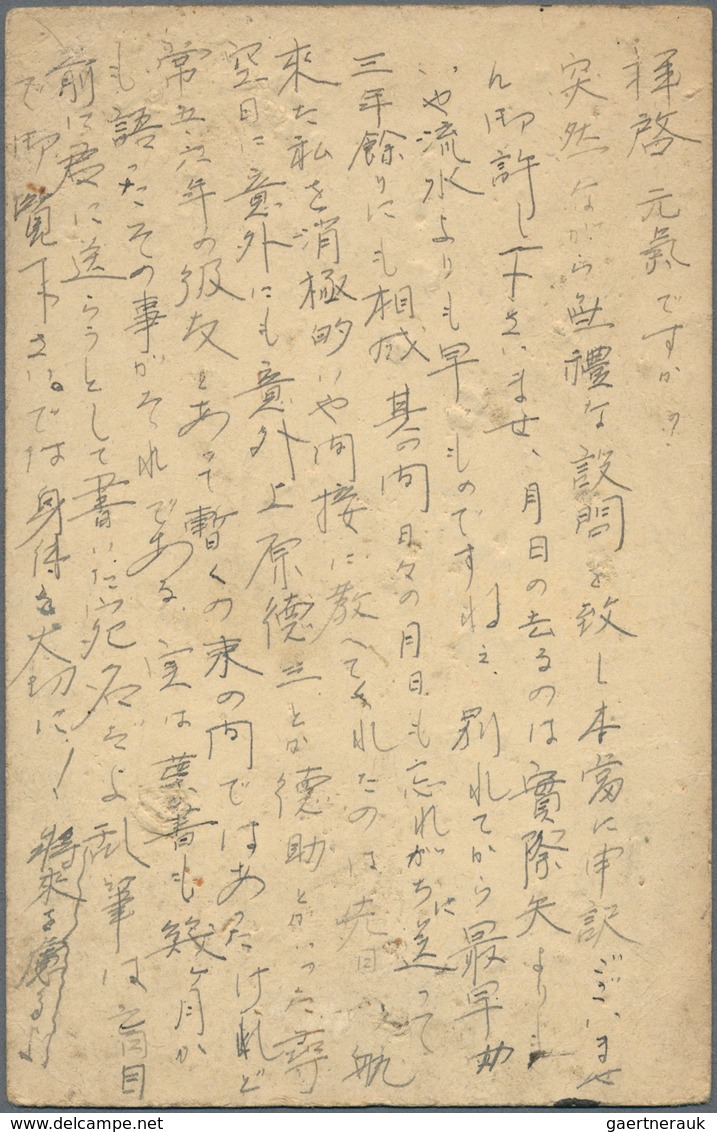 拝啓 元氣ですか?
突然ながら無禮な設問を致し本當に申訳ございませ
ん御許し下さいませ、月日の去るのは實際矢よりも
いや流水よりも早いものですねえ 別れてから最早
三年餘りにも相成 其の間 日々の月日も忘れがちに送って
來た私を消極的いや間接に教へてくれたのは先日
空目に意外にも意外上原德三とか德助とかいった尋
常五、六年の級友とあって暫くの束の間ではあったけれど
も語ったその事がそれである 実は葉書も幾ケ月か
前に君に送らうとして書いた宛名だよ乱筆は盲目
で御覧下さい。では身体を大切に!
gaertnerauk